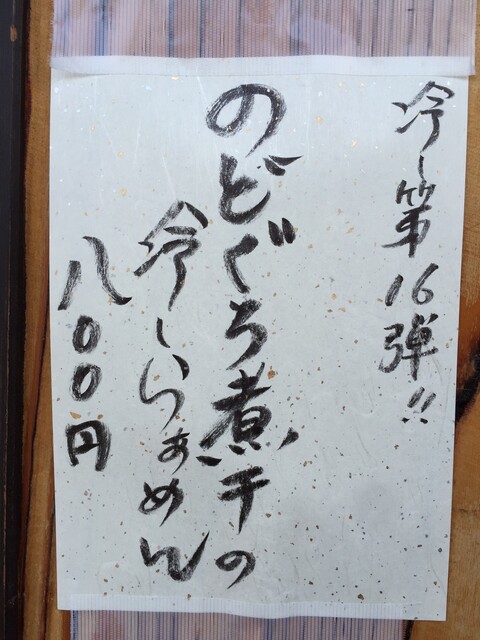 冷し第16弾!!
のどぐろ煮干の
冷しらぁめん
八〇〇円